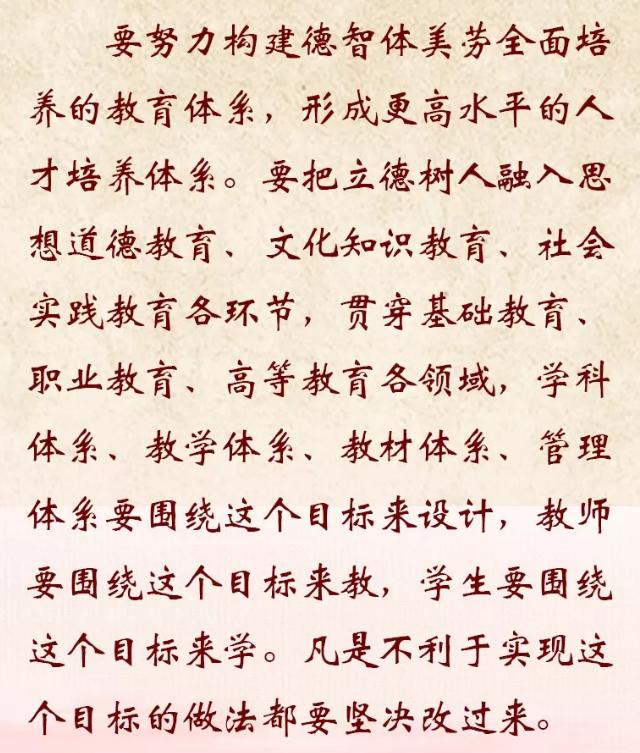 要努力构建德智体美劳全面培
养的教育体系，形成更高水平的人
才培养体系。要把立德树人融入思
想道德教育、文化知识教育、社会
实践教育各环节，贯穿基础教育、
职业教育、高等教育各领域，学科
体系、教学体系、教材体系、管理
体系要围绕这个目标来设计，教师
要围绕这个目标来教，学生要围绕
这个目标来学。凡是不利于实现这
个目标的做法都要坚决改过来。